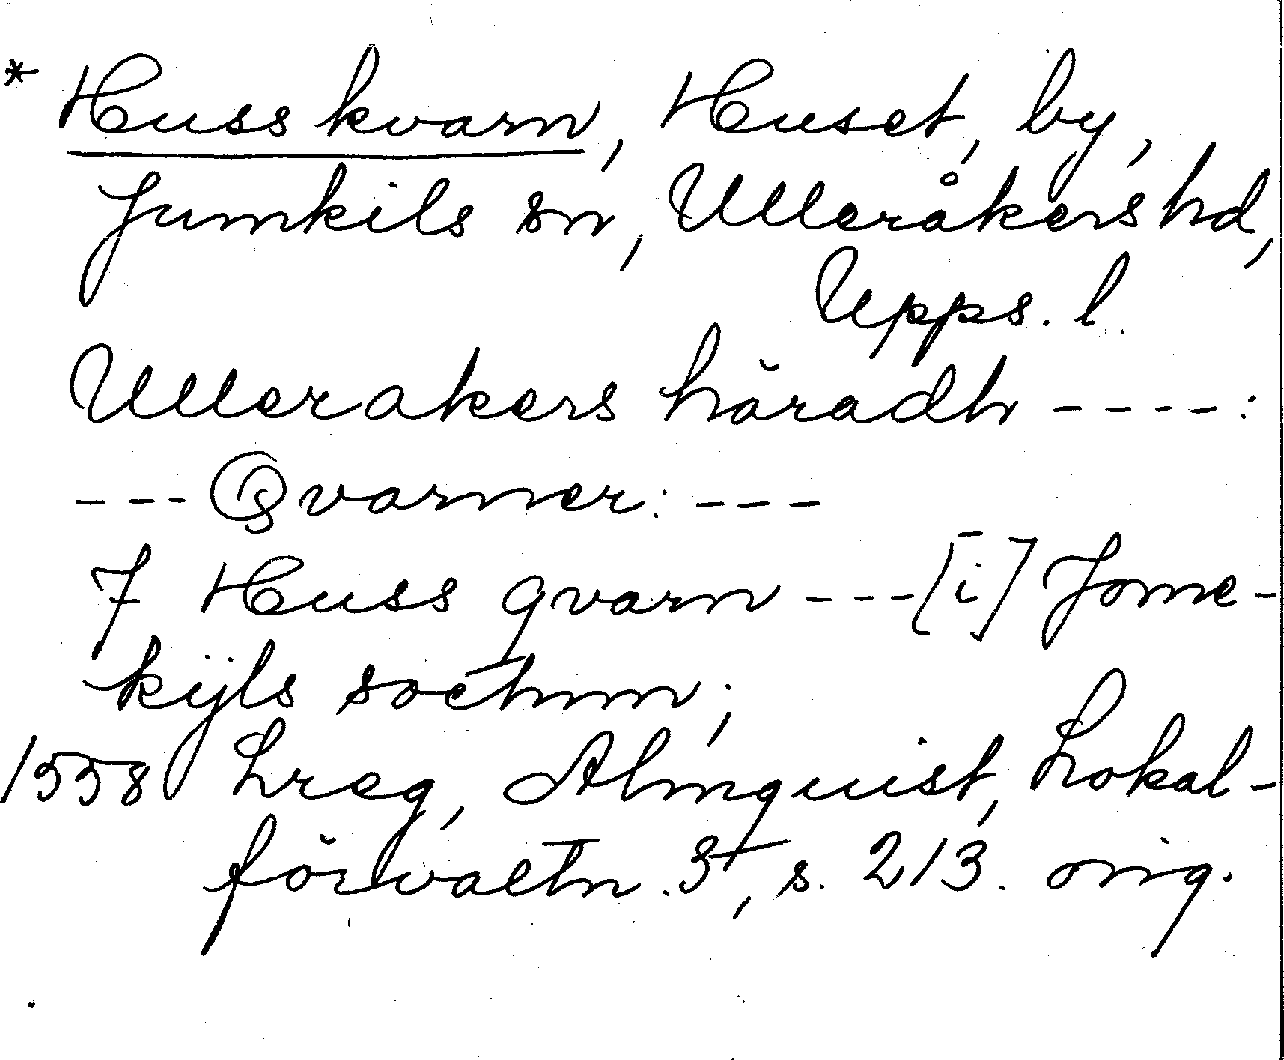 * Husskvarn, Huset, by,
Jumkils sn, Ulleråkers hd,
Upps. l.
Ullerakers häradh ----:
--- Qvarner: ---
J Huss qvarn ---[i] Jome-
kijls sochnn;
1558 Lreg, Almquist, Lokal-
förvaltn. 3, s. 213. orig.